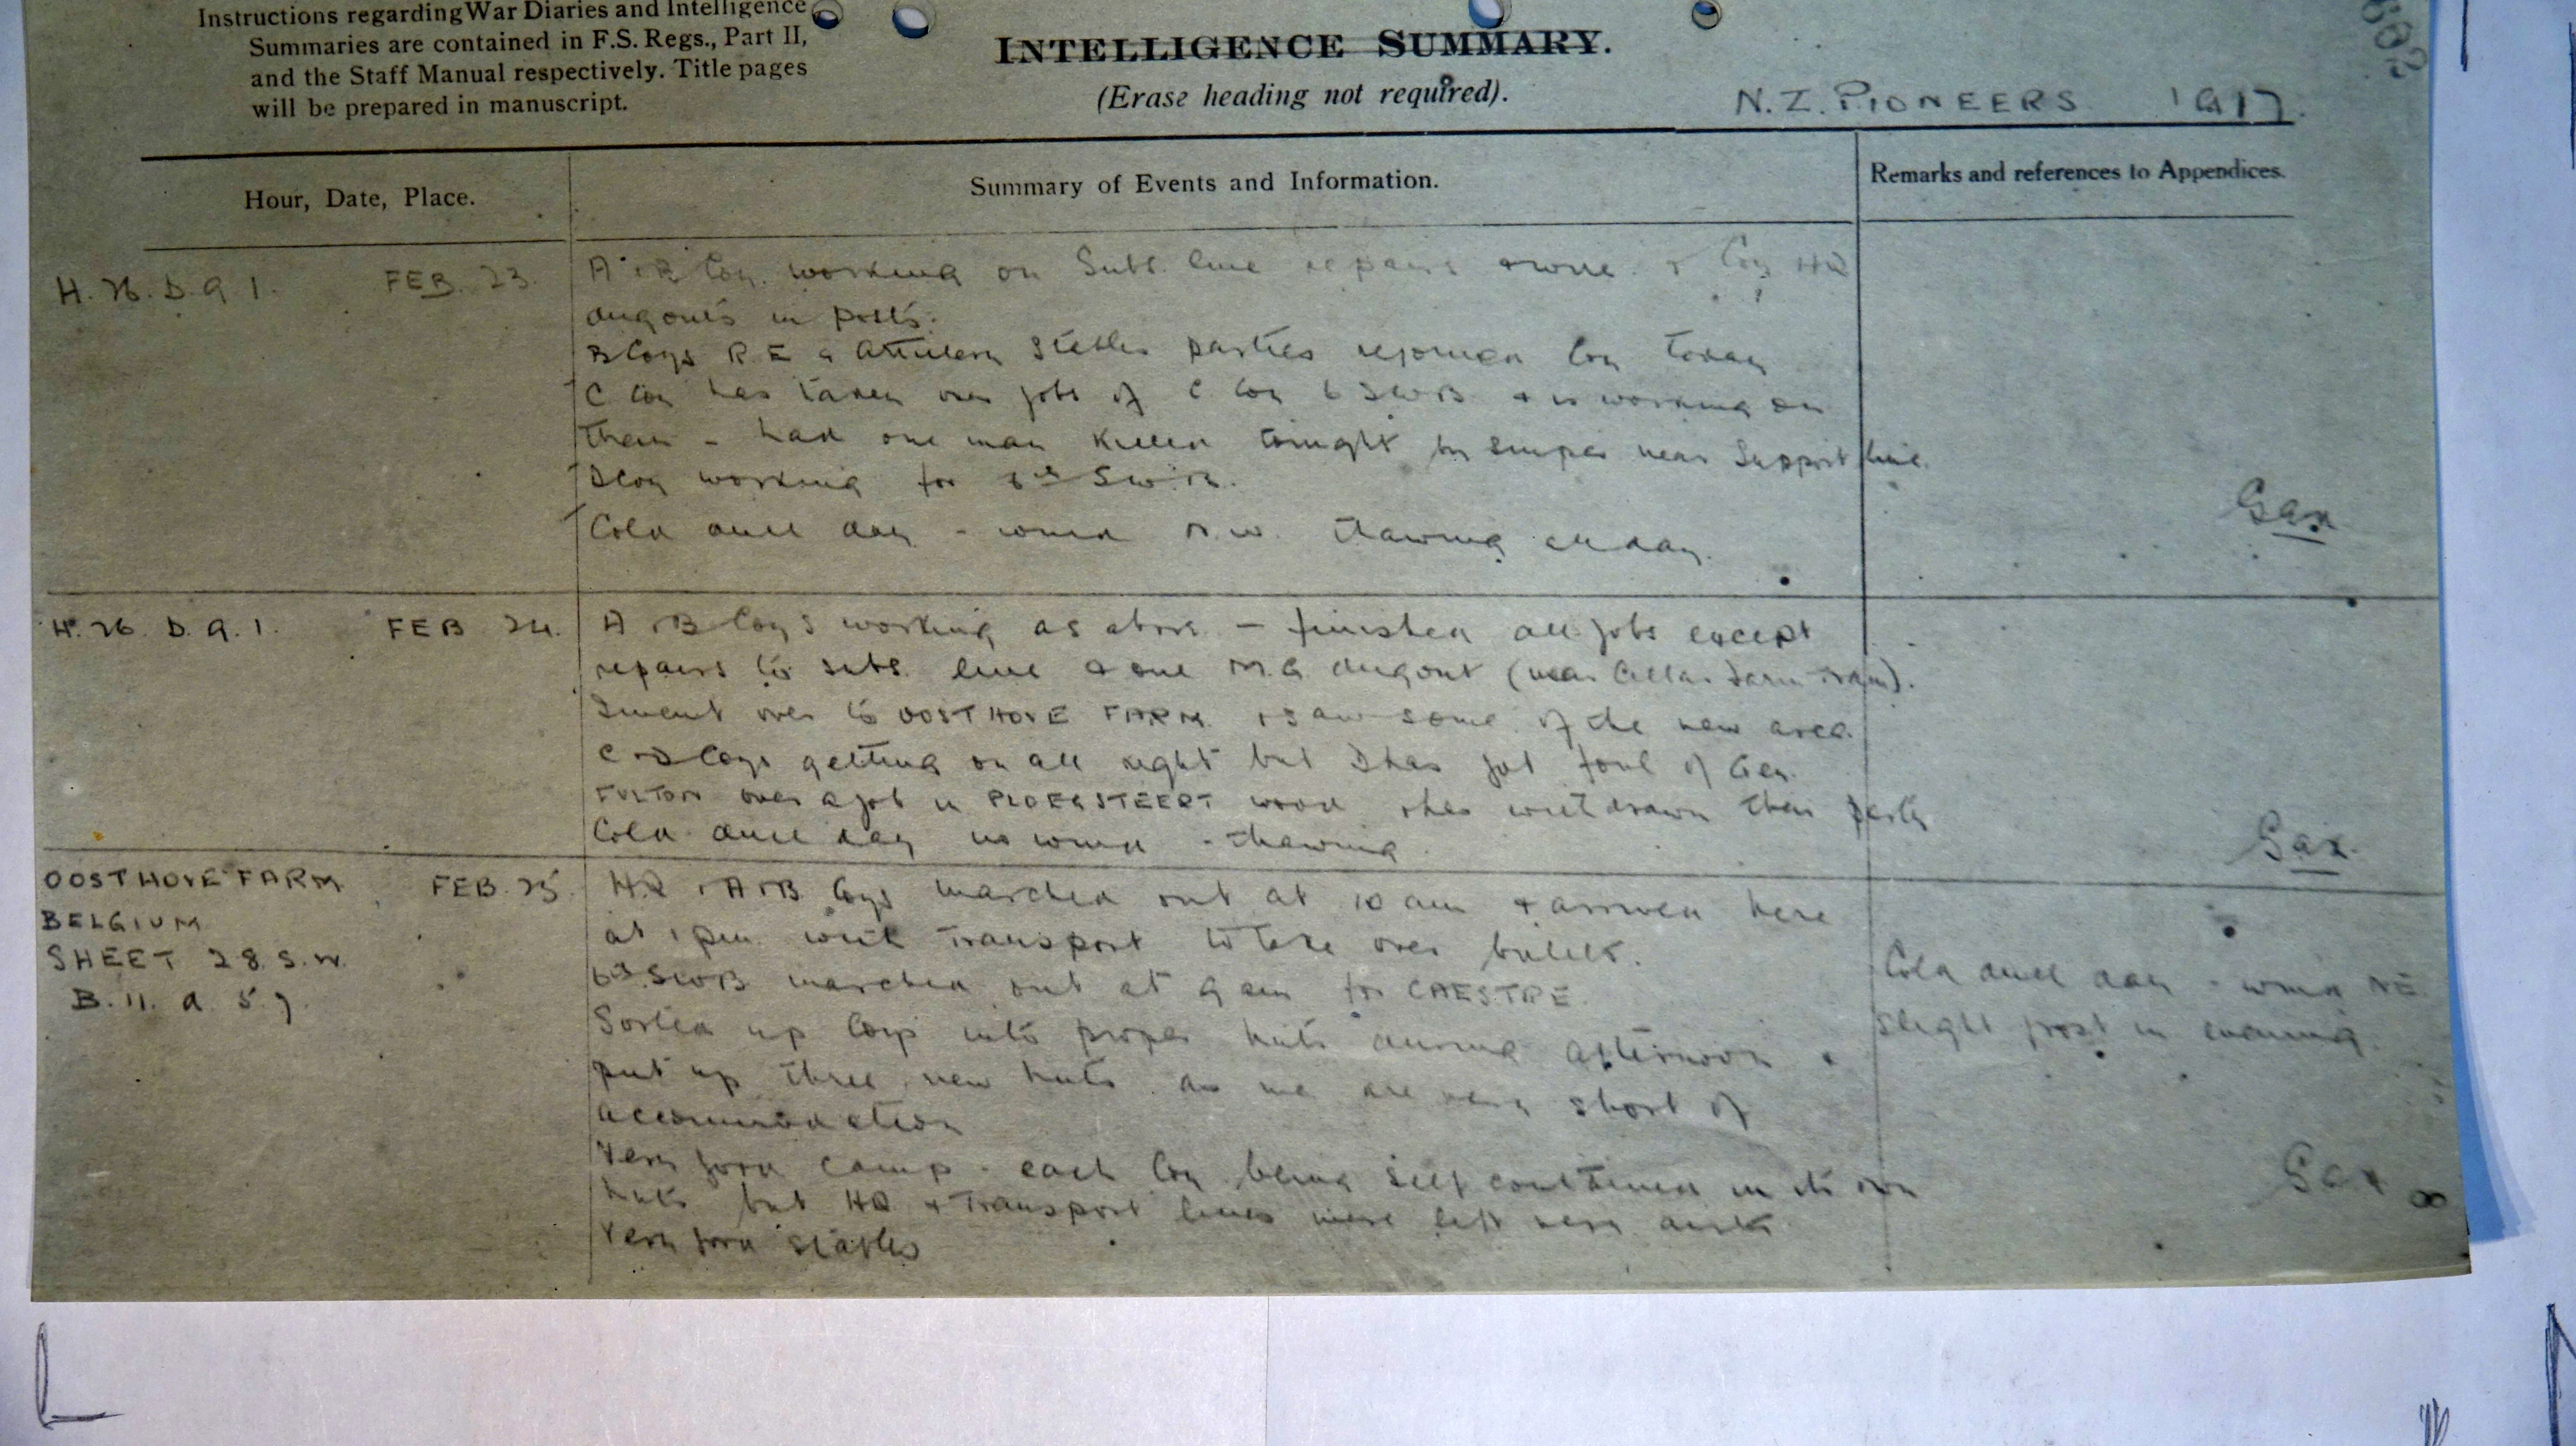 Instructions regarding War Diaries and Intelligence
Summaries are contained in F.S. Regs., Part II,
and the Staff Manual respectively. Title pages
will be prepared in manuscript.
INTELLIGENCE SUMMARY.
(Erase heading not required).
N.Z. PIONEERS 1917.
Hour, Date, Place.
Summary of Events and Information.
Remarks and references to Appendices.
H. 26. D. 9 1. FEB. 23.
A & B Coy. working on Subs. line repairs & wire & Coy HQ
dugouts in posts.
B Coys R E & Artillery Stables parties rejoined Coy today
C Coy has taken over jobs of C Coy 6 SWB & is working on
them - had one man killed tonight by sniper near Support line.
D Coy working for 6th S.W.B.
Cold dull day - wind N.W. Thawing all day.
H. 26. D. 9. 1. FEB 24.
A & B Coys working as above - finished all jobs except
repairs to subs. line & one M.G dugout (near Cellar Farm Tram).
I went over to OOSTHOVE FARM & saw some of the new area.
C & D Coys getting on all right but D has got foul of Gen.
FULTON over a job in PLOEGSTEERT wood & has withdrawn their party
Cold dull day no wind - thawing.
OOSTHOVE FARM FEB. 25
BELGIUM
SHEET 28. S.W.
B. 11. a. 5 7.
HQ & A & B Coys marched out at 10 am & arrived here
at 1 pm with Transport to take over billets.
6th SWB marched out at 9 am for CAESTRE.
Sorted up Coys into proper huts during afternoon &
put up three new huts as we are very short of
accommodation
Very good camp - each Coy being self contained in its own
huts but HQ & Transport lines were left very dirty
Very good stables
Cold dull day - wind NE.
Slight frost in evening.